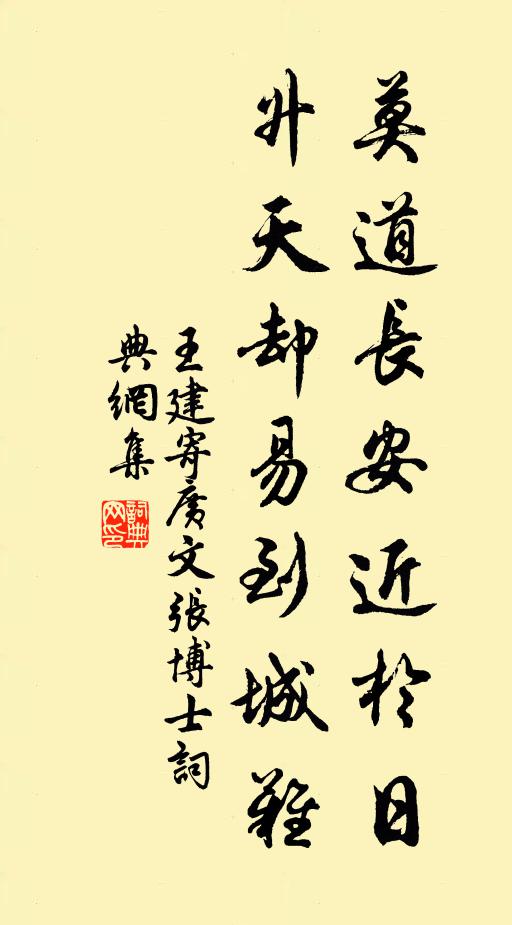 莫道長安近於日
升天却易到城難
王建寄廣文張博士詞
典網集
詞典
网印